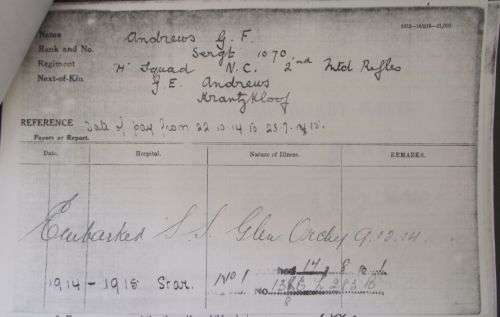 Names Andrews G. F.
Rank and No. Sergt 1070
Regiment "H" Squad N.C. 2nd Mtd Rifles
Next-of-Kin G. E. Andrews
Krantzkloof
REFERENCE Date of pay from 22.10.14 to 25.7.1915.
Papers or Report.
Date. Hospital. Nature of Illness. REMARKS.
Embarked S.S. Glen Orchy 9.12.14
1914-1915 Star. No 1
No.